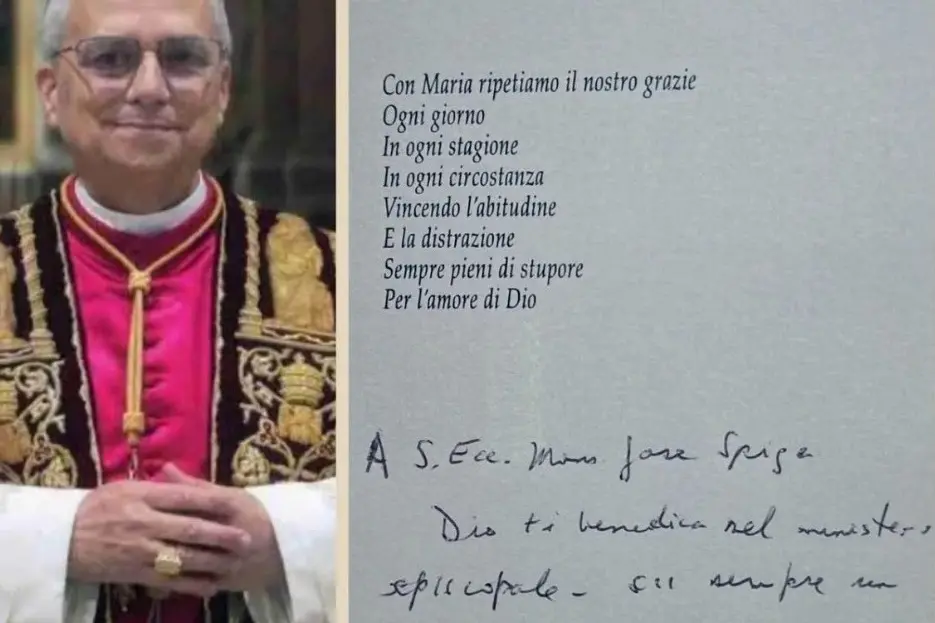 Con Maria ripetiamo il nostro grazie
Ogni giorno
In ogni stagione
In ogni circostanza
Vincendo l'abitudine
E la distrazione
Sempre pieni di stupore
Per l'amore di Dio
A S. Ecc. Mons Jose Spiga
Dio ti benedica nel ministero
episcopale - sii sempre un